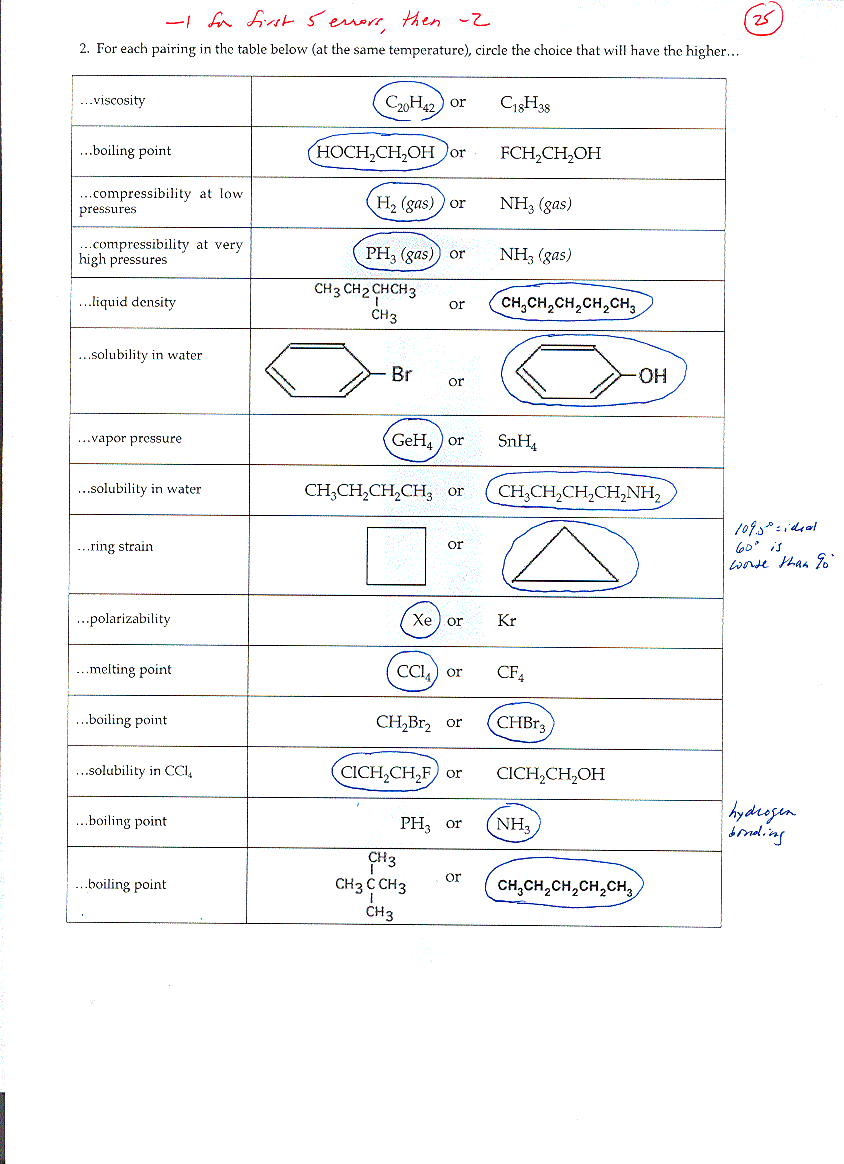 -1 for first 5 errors, then -2
25
2. For each pairing in the table below (at the same temperature), circle the choice that will have the higher…
…viscosity C₂₀H₄₂ or C₁₈H₃₈
…boiling point HOCH₂CH₂OH or FCH₂CH₂OH
…compressibility at low
pressures H₂ (gas) or NH₃ (gas)
…compressibility at very
high pressures PH₃ (gas) or NH₃ (gas)
CH₃CH₂CHCH₃
…liquid density or CH₃CH₂CH₂CH₂CH₃
CH₃
…solubility in water Br or OH
…vapor pressure GeH₄ or SnH₄
…solubility in water CH₃CH₂CH₂CH₃ or CH₃CH₂CH₂CH₂NH₂
109.5° = ideal
…ring strain or 60° is
worse than 90°
…polarizability Xe or Kr
…melting point CCl₄ or CF₄
…boiling point CH₂Br₂ or CHBr₃
…solubility in CCl₄ ClCH₂CH₂F or ClCH₂CH₂OH
…boiling point PH₃ or NH₃ hydrogen
bonding
CH₃
…boiling point CH₃CCH₃ or CH₃CH₂CH₂CH₂CH₃
CH₃